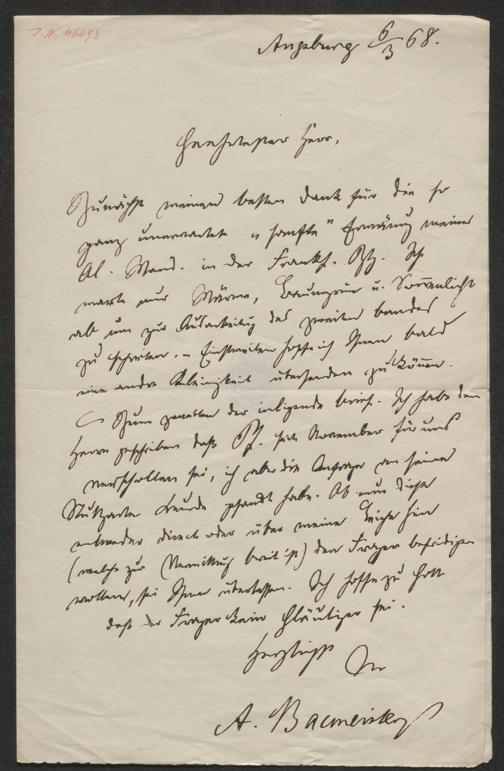 J.N. 46693
Augsburg 6/3 68.
Geehrtester Herr,
Zunächst meinen besten Dank für die so
ganz unerwartet "sanfte" Erwähnung meiner
Al. Wand. in der Frankf. Ztg. Ich
warte nur Wärme, Baumgrün u. Sonnenlicht
ab um zur Ausarbeitung des zweiten Bandes
zu schreiten. – Einstweilen hoffe ich Ihnen bald
eine andre Kleinigkeit übersenden zu können.
Zum zweiten der inliegende Brief. Ich habe dem
Herrn geschrieben daß Pf. seit November für uns
verschollen sei, ich aber die Anfrage an seine
Stuttgarter Freunde gesandt habe. Ob nun diese
entweder direct oder über meine Leiche hin
(welche zur Vermittlung bereit ist) den Frager befriedigen
wollen, sei Ihnen überlassen. Ich hoffe zu Gott
daß der Frager kein Gläubiger sei.
Herzlichst
Ihr
A. Bacmeister